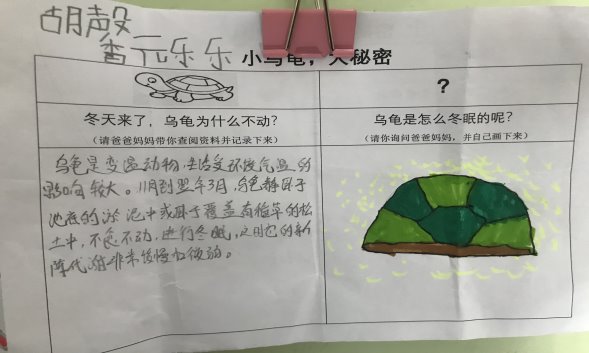 胡馨
香元乐乐
小乌龟，大秘密
?
冬天来了，乌龟为什么不动？
（请爸爸妈妈带你查阅资料并记录下来）
乌龟是怎么冬眠的呢？
（请你询问爸爸妈妈，并自己画下来）
乌龟是变温动物，生活受环境气温的
影响较大。11月到翌年3月，乌龟静卧于
池底的淤泥中或卧于覆盖有稻草的松
土中，不食不动，进行冬眠，这时它的新
陈代谢非常缓慢和微弱。